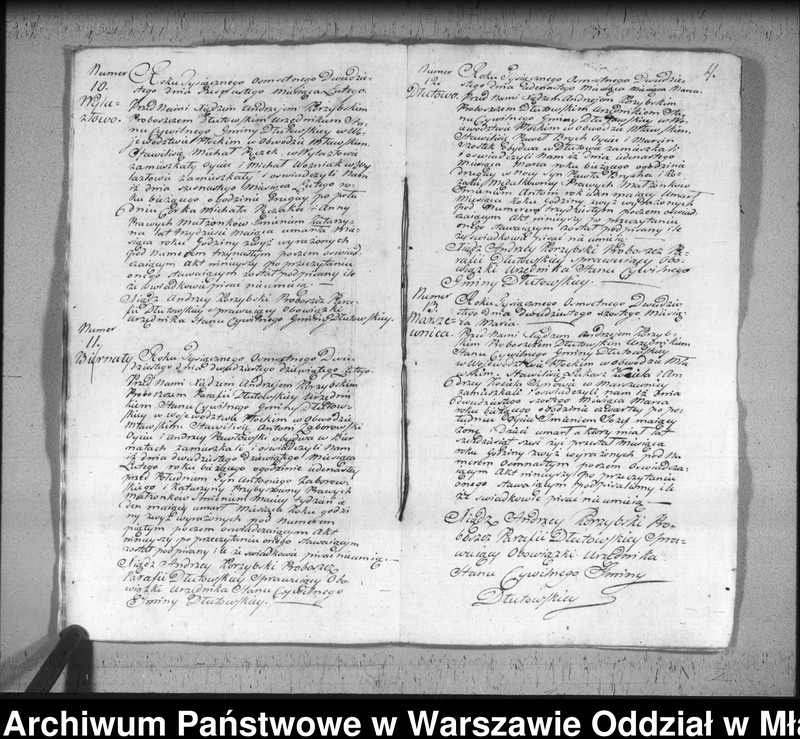 Numer
10.
Wyla-
złowo.
Roku Tysiącznego Osmsetnego Dwudzie-
stego dnia Miesiąca Lutego.
Przed Nami Xiędzem Andrzejem Korzybskim
Proboszczem Dłutowskim Urzędnikiem Sta-
nu Cywilnego Gminy Dłutowskiey w Wo-
jewodztwie Płockim w Obwodzie Mławskim.
Stawili się Michał w Wylazłowie
zamieszkały Oyciec i Michał Wozniak w Wy-
lazłowie zamieszkały i oswiadczyli Nam
iż dnia szesnastego Miesiąca Lutego ro-
ku bieżącego o godzinie drugiey po połu-
dniu Corka Michała i Anny
Prawych Małżonkow Imieniem Katarzy-
na lat trzydzieści maiąca umarła Mie-
siąca roku Godziny zwyż wyrażonych
pod Numerem trzynastym poczem oswiad-
czaiącym Akt ninieyszy po przeczytaniu
onego stawaiącym został podpisany ile
że swiadkowie pisać nieumieią. —
Xiądz Andrzey Korzybski Proboszcz Para-
fii Dłutowskiey sprawuiący Obowiązki
Urzędnika Stanu Cywilnego Gminy Dłutowskiey.
Numer
11.
Biernaty
Roku Tysiącznego Osmsetnego Dwu-
dziestego dnia dwudziestego dziewiątego Lutego.
Przed Nami Xiędzem Andrzejem Korzybskim
Proboszczem Parafii Dłutowskiey Urzędni-
kiem Stanu Cywilnego Gminy Dłutow-
skiey w Woiewodztwie Płockim w Obwodzie
Mławskim. Stawili się Antoni Zaborowski
Oyciec i Andrzey Pawłowski obydwa w Bier-
natach zamieszkali i oswiadczyli Nam
iż dnia dwudziestego dziewiątego Miesiąca
Lutego roku bieżącego o godzinie iedenastey
przed Południem Syn Antoniego Zaborow-
skiego i Katarzyny Przybyszowny Prawych
Małżonkow Imieniem Maciey tydzień ie-
den maiący umarł Miesiąca roku godzi-
ny zwyż wyrażonych pod Numerem
piątym poczem oswiadczaiącym Akt
ninieyszy po przeczytaniu onego stawaiącym
został podpisany ile że swiadkowie pisać nieumieią. —
Xiądz Andrzey Korzybski Proboszcz
Parafii Dłutowskiey Sprawuiący Obo-
wiązki Urzędnika Stanu Cywilnego
Gminy Dłutowskiey.
4.
Numer
12.
Dłutowo.
Roku Tysiącznego Osmsetnego Dwudzie-
stego dnia iedenastego Miesiąca Marca.
Przed Nami Xiędzem Andrzejem Korzybskim
Proboszczem Dłutowskim Urzędnikiem Sta-
nu Cywilnego Gminy Dłutowskiey w Wo-
iewodztwie Płockim w Obwodzie Mławskim.
Stawili się Paweł Oyciec i Marcin
obydwa w Dłutowie zamieszkali
i oswiadczyli Nam iż dnia iedenastego
Miesiąca Marca roku bieżącego o godzinie
drugiey w Nocy Syn Pawła i Ko-
Prawych Małżonkow
Imieniem Antoni rok ieden maiący umarł
Miesiąca roku Godziny zwyż wyrażonych
pod Numerem trzydziestym poczem oswiad-
czaiącym Akt ninieyszy po przeczytaniu
onego stawaiącym został podpisany ile
że swiadkowie pisać nieumieią.
Xiądz Andrzey Korzybski Proboszcz Pa-
rafii Dłutowskiey Sprawuiący Obo-
wiązki Urzędnika Stanu Cywilnego
Gminy Dłutowskiey.
Numer
13.
Mawsze-
wnica.
Roku Tysiącznego Osmsetnego Dwudzie-
stego dnia Dwudziestego szostego Miesią-
ca Marca.
Przed Nami Xiędzem Andrzejem Korzyb-
skim Proboszczem Dłutowskim Urzędnikiem
Stanu Cywilnego Gminy Dłutowskiey
w Woiewodztwie Płockim w Obwodzie Mła-
wskim. Stawili się Łukasz i An-
drzey Synowie w
zamieszkali i oswiadczyli nam iż dnia
dwudziestego szostego Miesiąca Marca
roku bieżącego o godzinie czwartey po po-
łudniu Oyciec Imieniem Jozef maiący
żonę i dzieci umarł a ktory miał lat
sześćdziesiąt Miesiąca
roku Godziny zwyż wyrażonych pod Nu-
merem osmnastym poczem Oswiadcza-
iącym Akt ninieyszy po przeczytaniu
onego stawaiącym podpisaliśmy ile
że swiadkowie pisać nieumieią.
Xiądz Andrzey Korzybski Pro-
boszcz Parafii Dłutowskiey Spra-
wuiący Obowiązki Urzędnika
Stanu Cywilnego Gminy
Dłutowskiey
Archiwum Państwowe w Warszawie Oddział w Mła